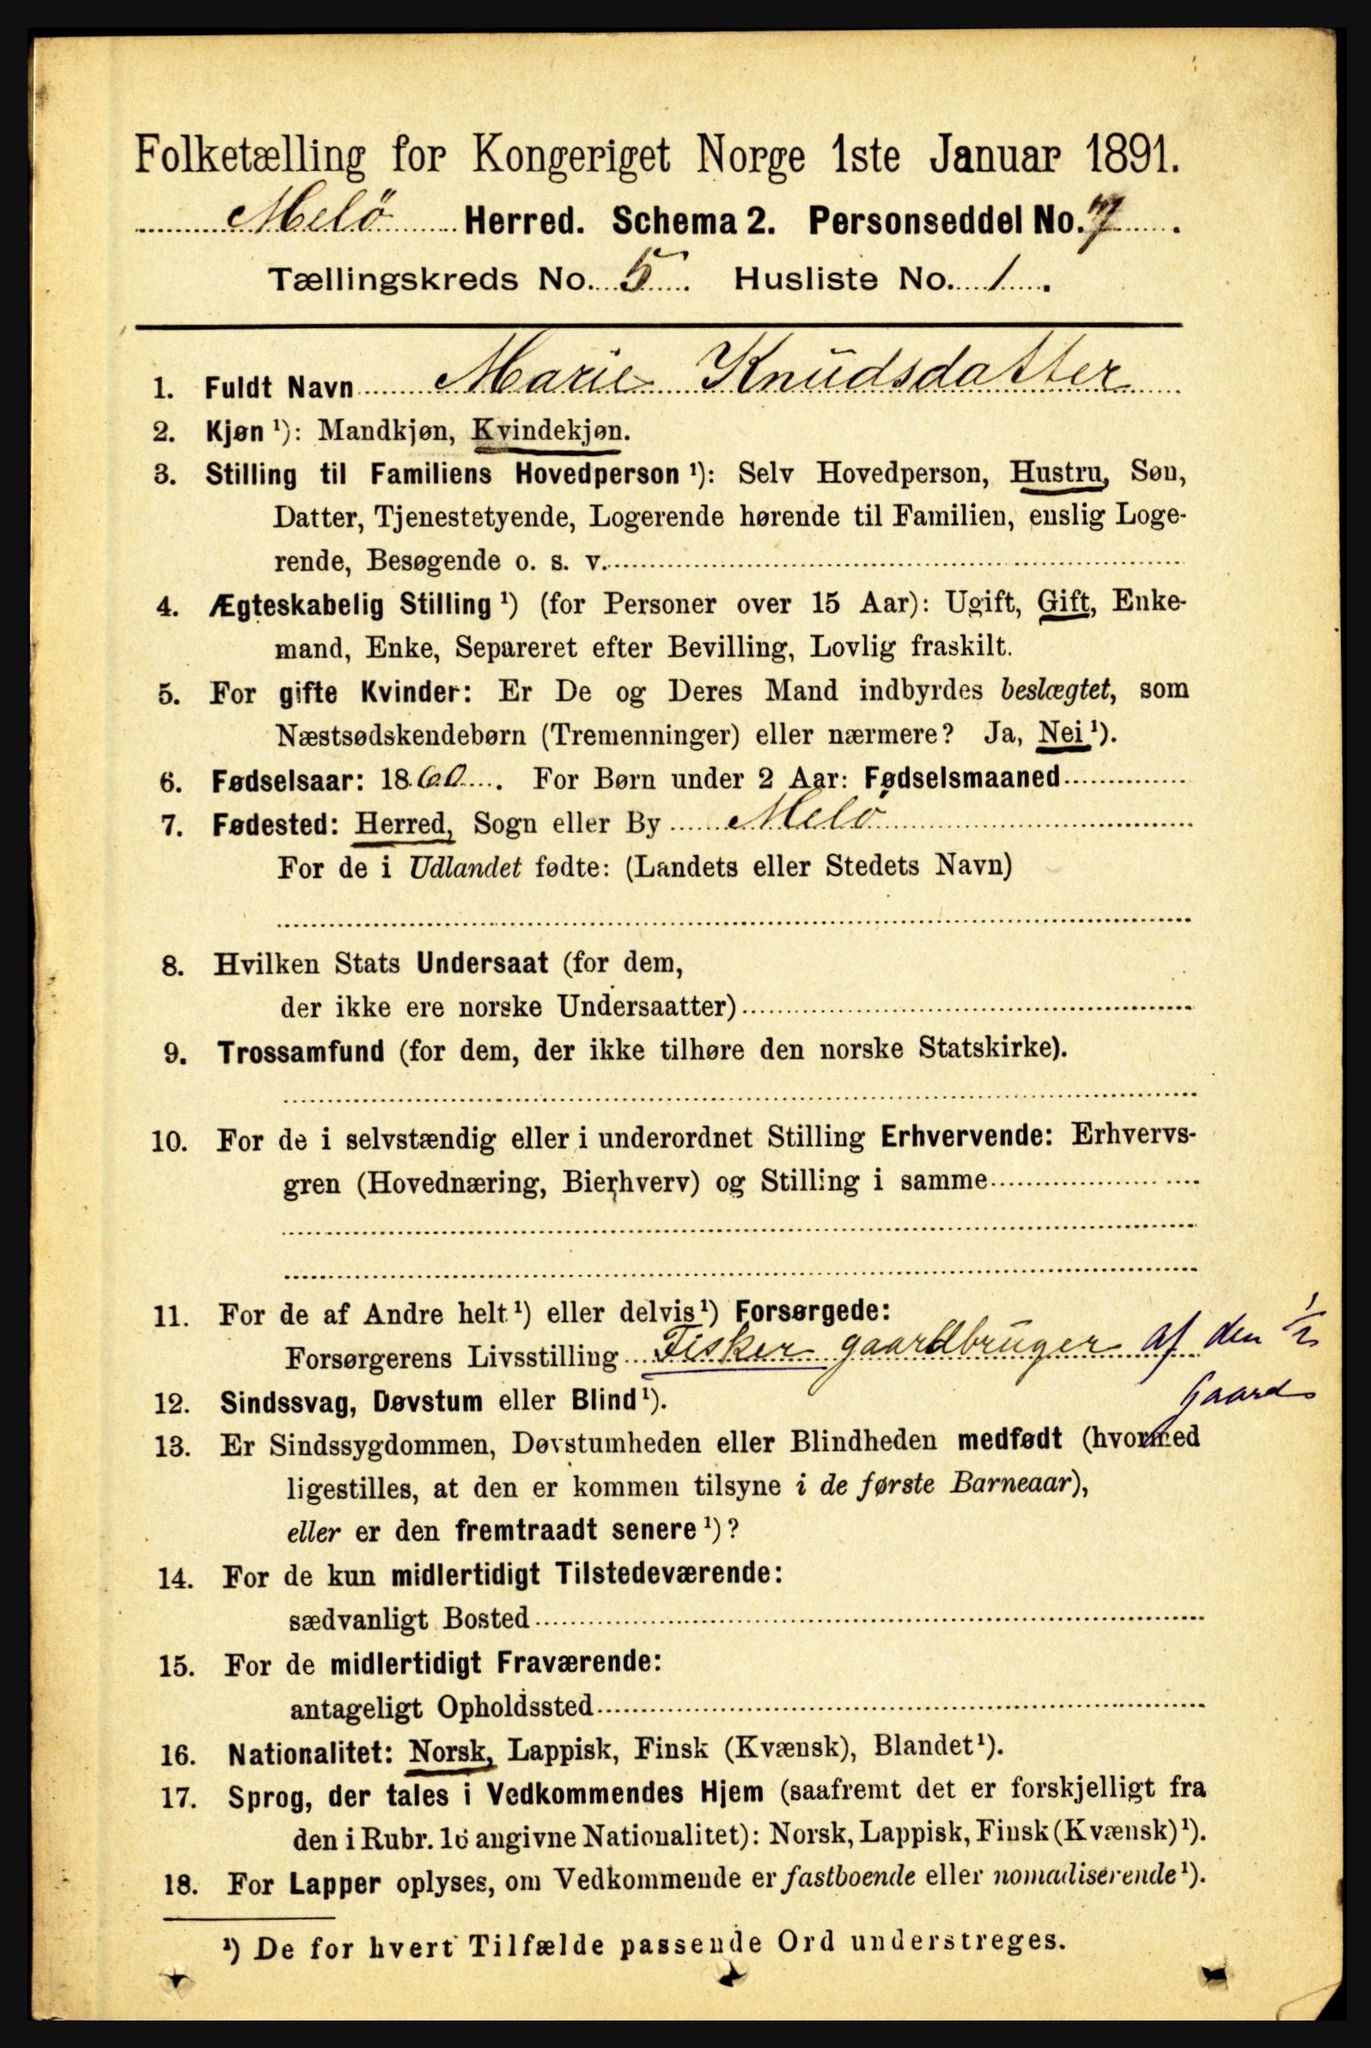 Folketælling for Kongeriget Norge 1ste Januar 1891.
Melö Herred. Schema 2. Personseddel No. 7.
Tællingskreds No. 5. Husliste No. 1.
1. Fuldt Navn Marie Knudsdatter
2. Kjøn ¹): Mandkjøn, Kvindekjøn.
3. Stilling til Familiens Hovedperson ¹): Selv Hovedperson, Hustru, Søn,
Datter, Tjenestetyende, Logerende hørende til Familien, enslig Loge-
rende, Besøgende o. s. v.
4. Ægteskabelig Stilling ¹) (for Personer over 15 Aar): Ugift, Gift, Enke-
mand, Enke, Separeret efter Bevilling, Lovlig fraskilt.
5. For gifte Kvinder: Er De og Deres Mand indbyrdes beslægtet, som
Næstsødskendebørn (Tremenninger) eller nærmere? Ja, Nei ¹).
6. Fødselsaar: 1860. For Børn under 2 Aar: Fødselsmaaned
7. Fødested: Herred, Sogn eller By Melö
For de i Udlandet fødte: (Landets eller Stedets Navn)
8. Hvilken Stats Undersaat (for dem,
der ikke ere norske Undersaatter)
9. Trossamfund (for dem, der ikke tilhøre den norske Statskirke).
10. For de i selvstændig eller i underordnet Stilling Erhvervende: Erhvervs-
gren (Hovednæring, Bierhverv) og Stilling i samme
11. For de af Andre helt ¹) eller delvis ¹) Forsørgede:
Forsørgerens Livsstilling Fisker gaardbruger af den 1/2
Gaard
12. Sindssvag, Døvstum eller Blind ¹).
13. Er Sindssygdommen, Døvstumheden eller Blindheden medfødt (hvormed
ligestilles, at den er kommen tilsyne i de første Barneaar),
eller er den fremtraadt senere ¹)?
14. For de kun midlertidigt Tilstedeværende:
sædvanligt Bosted
15. For de midlertidigt Fraværende:
antageligt Opholdssted
16. Nationalitet: Norsk, Lappisk, Finsk (Kvænsk), Blandet ¹).
17. Sprog, der tales i Vedkommendes Hjem (saafremt det er forskjelligt fra
den i Rubr. 16 angivne Nationalitet): Norsk, Lappisk, Finsk (Kvænsk) ¹).
18. For Lapper oplyses, om Vedkommende er fastboende eller nomadiserende ¹).
¹) De for hvert Tilfælde passende Ord understreges.